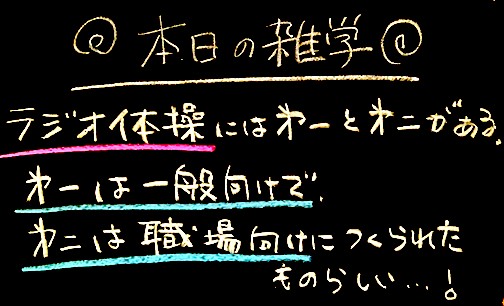 本日の雑学
ラジオ体操には第一と第二がある。
第一は一般向けで、
第二は職場向けにつくられた
ものらしい…!